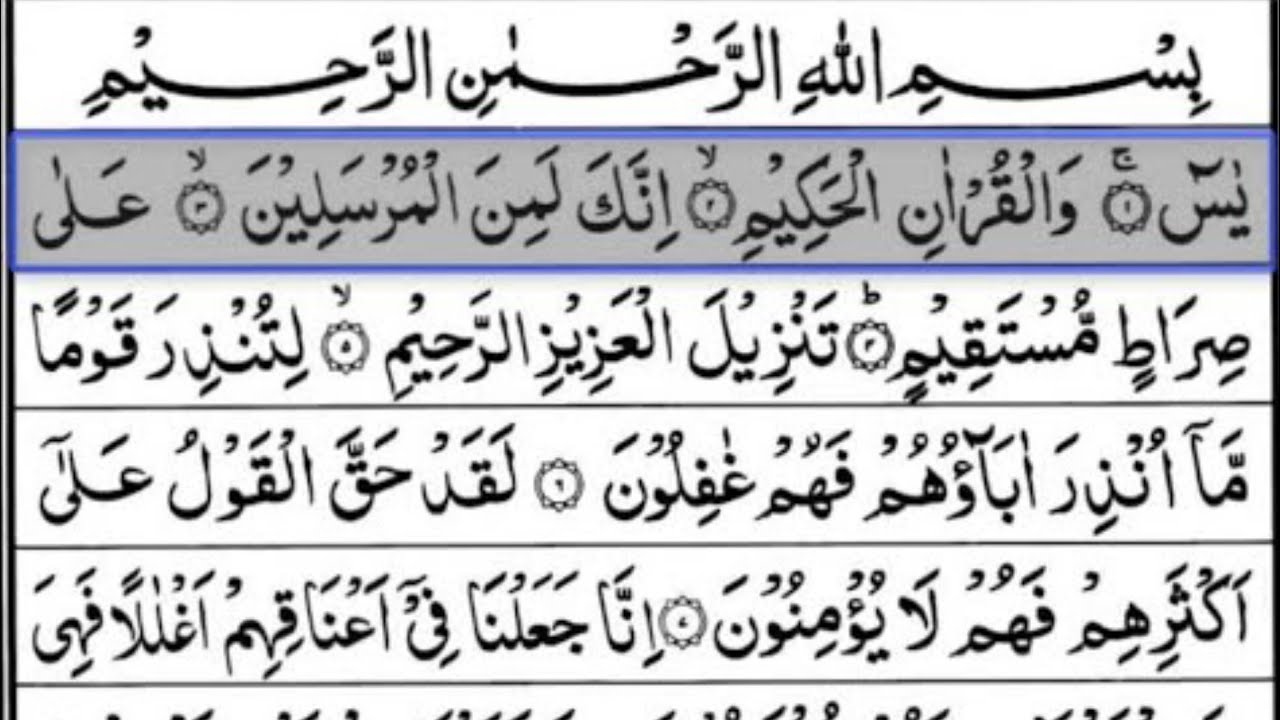 بِسْمِ اللهِ الرَّحْمٰنِ الرَّحِيْمِ
يٰسٓ ۚ﴿۱﴾ وَالْقُرْاٰنِ الْحَكِيْمِ ۙ﴿۲﴾ اِنَّكَ لَمِنَ الْمُرْسَلِيْنَ ۙ﴿۳﴾ عَلٰى
صِرَاطٍ مُّسْتَقِيْمٍ ؕ﴿۴﴾ تَنْزِيْلَ الْعَزِيْزِ الرَّحِيْمِ ۙ﴿۵﴾ لِتُنْذِرَ قَوْمًا
مَّاۤ اُنْذِرَ اٰبَآؤُهُمْ فَهُمْ غٰفِلُوْنَ ﴿۶﴾ لَقَدْ حَقَّ الْقَوْلُ عَلٰۤى
اَكْثَرِهِمْ فَهُمْ لَا يُؤْمِنُوْنَ ﴿۷﴾ اِنَّا جَعَلْنَا فِيْۤ اَعْنَاقِهِمْ اَغْلٰلًا فَهِيَ